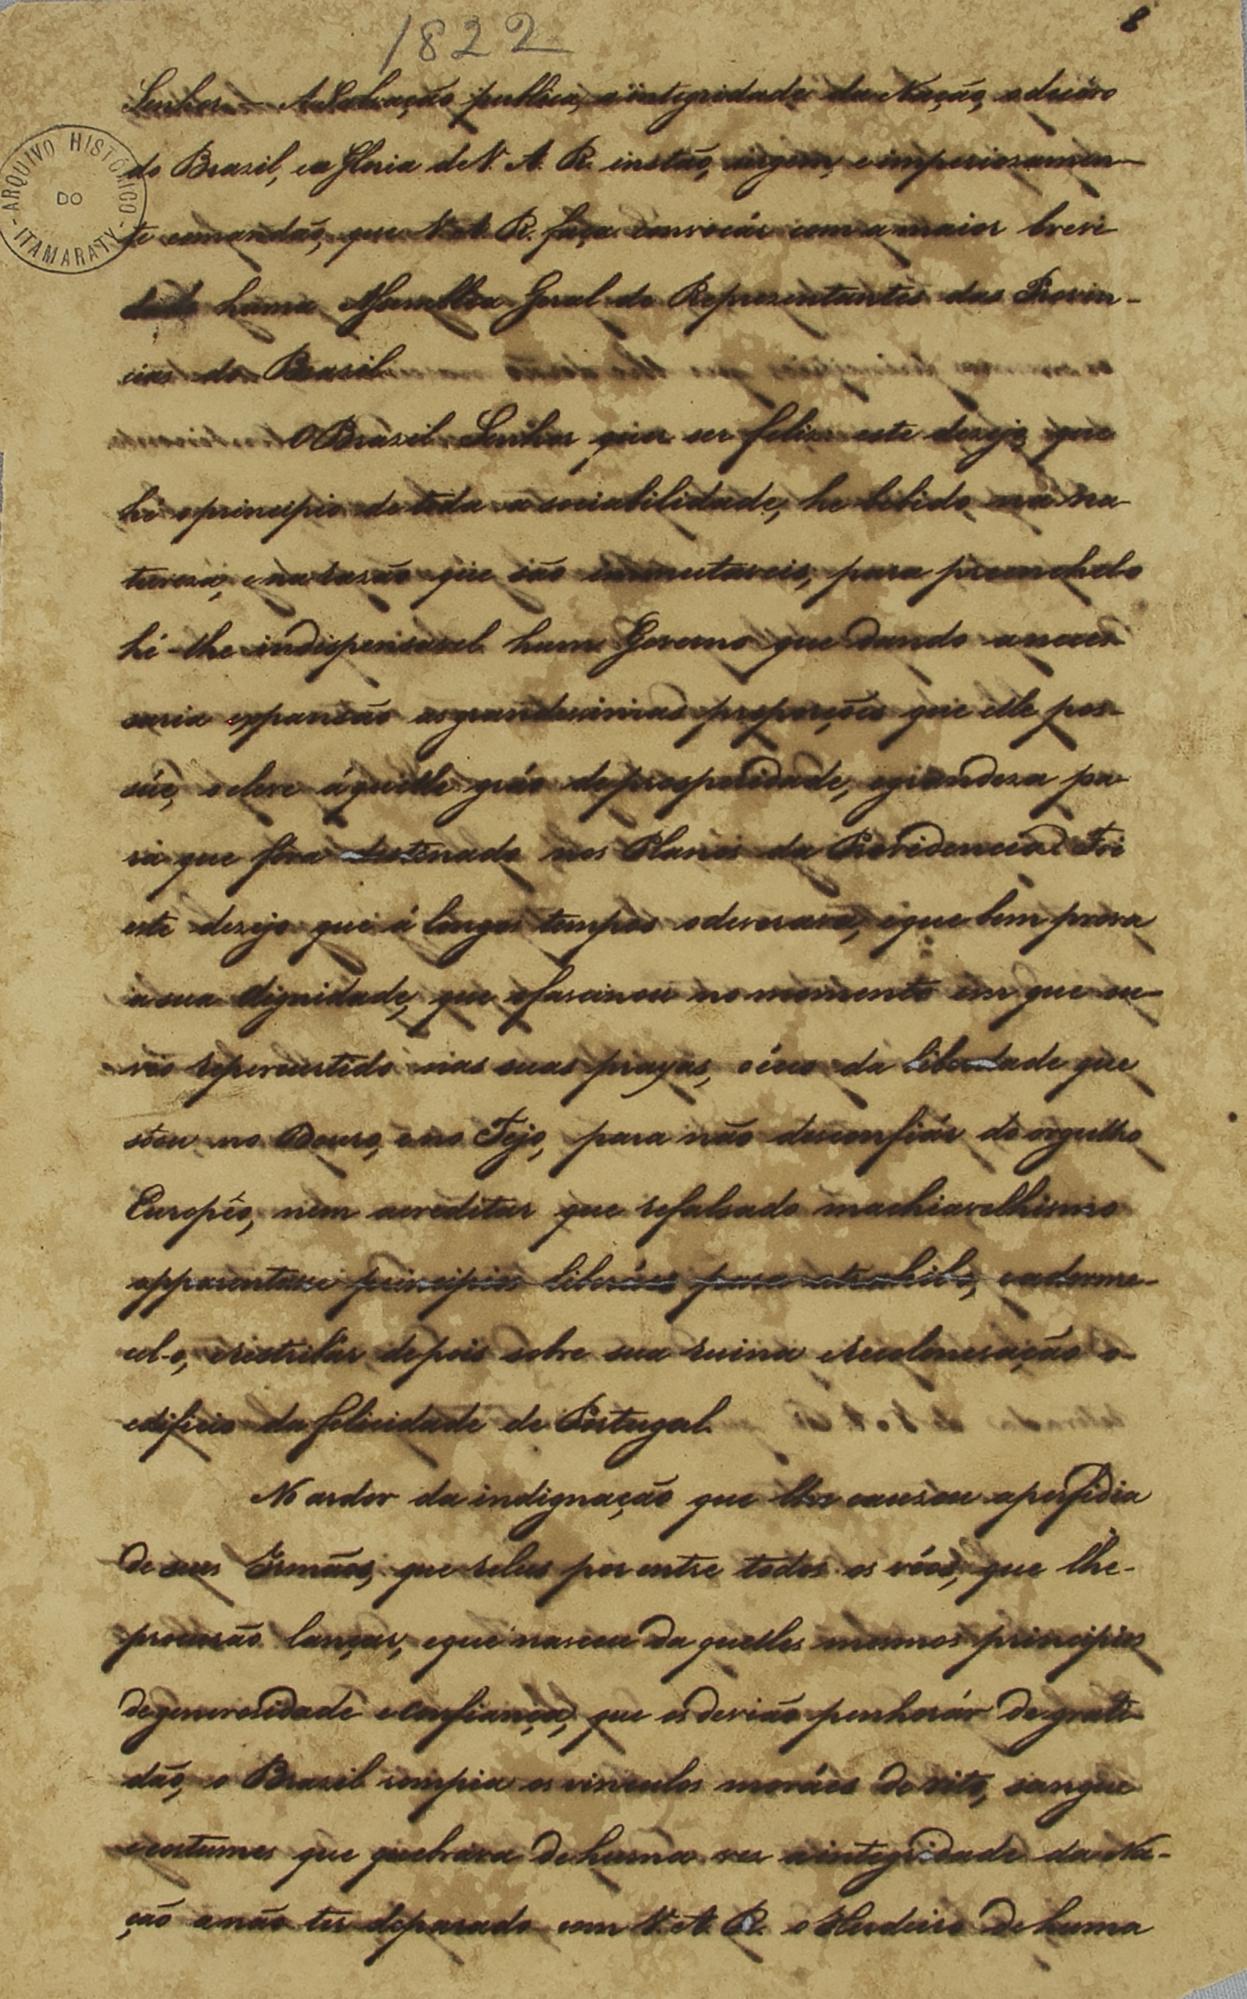 1822
8
Senhor — A Salvação publica, a integridade da Nação, o decóro
do Brasil, e a Gloria de V. A. R. instão, urgem, e imperiosamen-
te comandão, que V. A. R. faça convocár com a maior brevi
dade huma Assemblea Geral de Representantes das Provin-
cias do Brasil
O Brazil Senhor, quer ser feliz: este dezejo, que
hé o principio de toda a sociabilidade, he bebido na na
tureza, e na razão que são immutaveis, para preenchelo
hé-lhe indispensavel hum Governo que dando a neces
saria expansão as grandissimas proporções que elle pos-
súe, o eleve áquelle gráo de prosperidade, e grandeza pa-
ra que fôra destinado nos Planos da Providencia. Foi
este dezejo que á longos tempos o devorava, e que bem prova
a sua dignidade, que o fascinou no momento em que ou-
vio repercutido nas suas prayas, o éco da liberdade que
soou no Douro, e no Tejo, para não desconfiár do orgulho
Europêo, nem acreditar que refalsado machiavelhismo
apparentasse principios liberáes para atrahilo, e adorme-
cel-o, e restribar depois sobre sua ruina e recolonisação o
edificio da felicidade de Portugal.
No ardor da indignação que lhe causou a perfidia
de seus Irmãos, que reluz por entre todos os véos, que lhe-
procurão lançar, e que nasceu daquelles mesmos principios
de generosidade e confiança, que os devião penhorár de grati
dão, o Brazil rompia os vinculos moráes de rito, sangue
e costumes que quebrava de huma vez a integridade da Na-
ção a não ter deparado com V. A. R. o Herdeiro de huma
ARQUIVO HISTÓRICO
DO
ITAMARATY